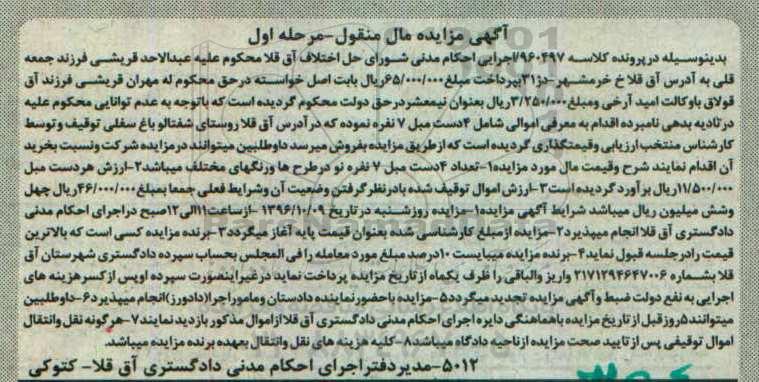 آگهی مزایده مال منقول-مرحله اول
بدینوسیله درپرونده کلاسه ۹۶۰۴۹۷/اجرایی احکام مدنی شورای حل اختلاف آق قلا محکوم علیه عبدالاحد قریشی فرزند جمعه
قلی به آدرس آق قلا خ خرمشهر-دژ۳۱بپرداخت مبلغ۶۵/۰۰۰/۰۰۰ریال بابت اصل خواسته درحق محکوم له مهران قریشی فرزند آق
قولاق باوکالت امید آرخی ومبلغ۳/۲۵۰/۰۰۰ریال بعنوان نیمعشردرحق دولت محکوم گردیده است که باتوجه به عدم توانایی محکوم علیه
درتادیه بدهی نامبرده اقدام به معرفی اموالی شامل ۴دست مبل ۷ نفره نموده که در آدرس آق قلا روستای شفتالو باغ سفلی توقیف وتوسط
کارشناس منتخب ارزیابی وقیمتگذاری گردیده است که ازطریق مزایده بفروش میرسد داوطلبین میتوانند درمزایده شرکت ونسبت بخرید
آن اقدام نمایند شرح وقیمت مال مورد مزایده۱-تعداد ۴دست مبل ۷ نفره نو درطرح ها ورنگهای مختلف میباشد۲-ارزش هردست مبل
۱۱/۵۰۰/۰۰۰ریال برآورد گردیده است۳-ارزش اموال توقیف شده بادرنظر گرفتن وضعیت آن وشرایط فعلی جمعا بمبلغ۴۶/۰۰۰/۰۰۰ریال چهل
وشش میلیون ریال میباشد شرایط آگهی مزایده۱-مزایده روزشنبه درتاریخ ۱۳۹۶/۱۰/۰۹ -ازساعت۱۱الی۱۲صبح دراجرای احکام مدنی
دادگستری آق قلاانجام میپذیرد۲-مزایده ازمبلغ کارشناسی شده بعنوان قیمت پایه آغاز میگردد۳-برنده مزایده کسی است که بالاترین
قیمت رادرجلسه قبول نماید۴-برنده مزایده میبایست ۱۰درصد مبلغ مورد معامله را فی المجلس بحساب سپرده دادگستری شهرستان آق
قلا بشماره ۲۱۷۱۲۹۴۶۴۷۰۰۶ واریز والباقی را ظرف یکماه ازتاریخ مزایده پرداخت نماید درغیراینصورت سپرده اوپس ازکسرهزینه های
اجرایی به نفع دولت ضبط وآگهی مزایده تجدید میگردد۵-مزایده باحضورنماینده دادستان ومامور اجرا(دادورز)انجام میپذیرد۶-داوطلبین
میتوانند۵روز قبل ازتاریخ مزایده باهماهنگی دایره اجرای احکام مدنی دادگستری آق قلاازاموال مذکور بازدید نمایند۷-هرگونه نقل وانتقال
اموال توقیفی پس ازتایید صحت مزایده ازناحیه دادگاه میباشد۸-کلیه هزینه های نقل وانتقال بعهده برنده مزایده میباشد.
۵۰۱۲-مدیردفتراجرای احکام مدنی دادگستری آق قلا- کتوکی